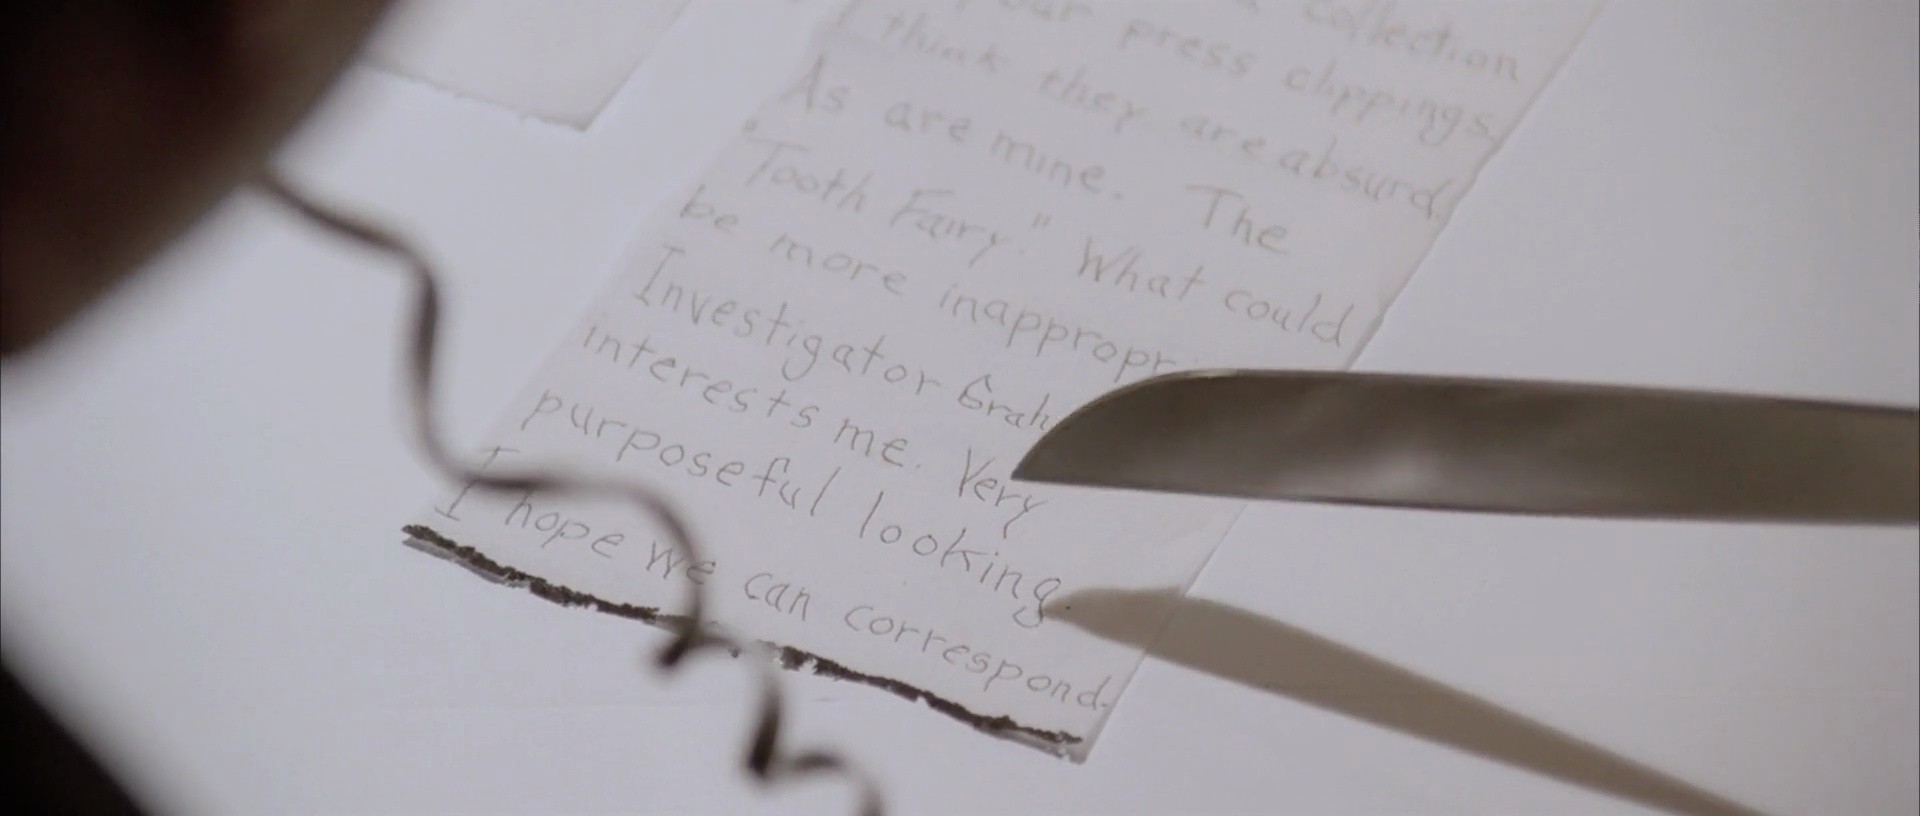 collection
press clippings.
I think they are absurd.
As are mine. The
"Tooth Fairy." What could
be more inappropr
Investigator Grah
interests me. Very
purposeful looking.
I hope we can correspond.